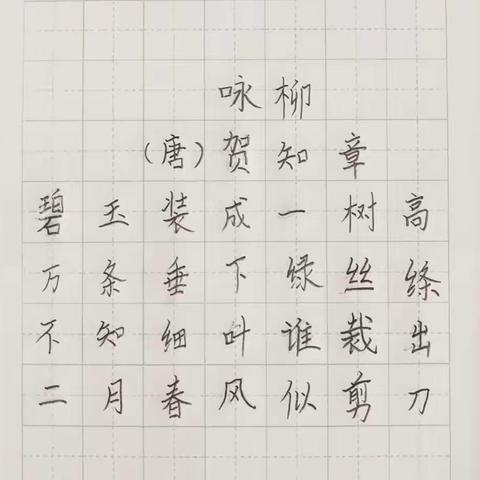 咏柳
(唐)贺知章
碧玉装成一树高
万条垂下绿丝绦
不知细叶谁裁出
二月春风似剪刀